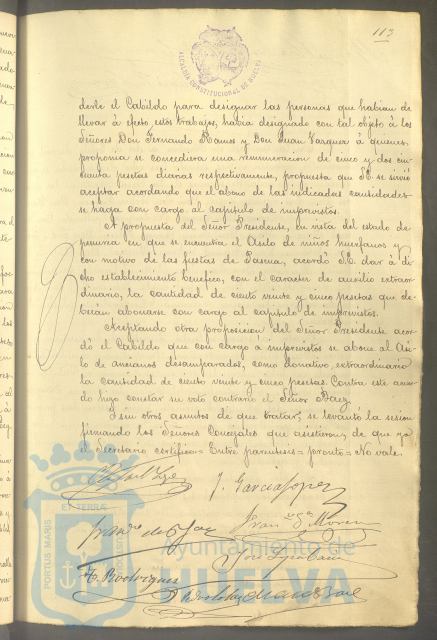 113
ALCALDIA CONSTITUCIONAL DE HUELVA
derle el Cabildo para designar las personas que habian de
llevar á efecto estos trabajos, habia designado con tal objeto á los
Señores Don Fernando Ramos y Don Juan Vazquez á quienes
proponia se concediera una remuneracion de cinco y dos cin
cuenta pesetas diarias respectivamente, propuesta que S.E. se sirvió
aceptar acordando que el abono de las indicadas cantidades
se haga con cargo al capitulo de imprevistos.
A propuesta del Señor Presidente, en vista del estado de
penuria en que se encuentra el Asilo de niños huerfanos y
con motivo de las fiestas de Pascua, acordó S.E. dar á di
cho establecimiento benefico, con el caracter de auxilio extraor
dinario, la cantidad de ciento veinte y cinco pesetas que de
berian abonarse con cargo al capitulo de imprevistos.
Aceptando otra proposicion del Señor Presidente acor
dó el Cabildo que con cargo á imprevistos se abone al Asi
lo de ancianos desamparados, como donativo extraordinario
la cantidad de ciento veinte y cinco pesetas. Contra este acuer
do hizo constar su voto contrario el Señor Baez.
Y sin otros asuntos de que tratar, se levantó la sesion
firmando los Señores Concejales que asistieron, de que yo
el Secretario certifico = Entre parentesis = pronto = No vale.
J. Garcia Lopez
H. Rodriguez
PORTUS MARIS ET TERRÆ CUSTODIA
Ayuntamiento de
HUELVA